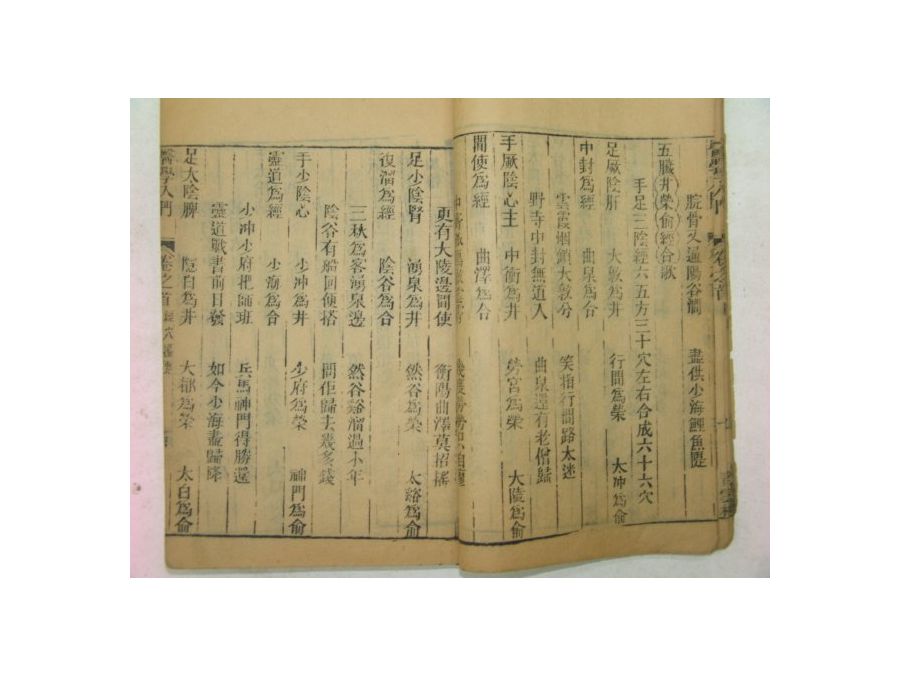 腕骨又過陽谷澗　盡供少海鯉魚躔
五臟井滎俞經合歌
手足三陰經六五方三十穴左右合成六十六穴
足厥陰肝　大敦爲井　行間爲滎　太冲爲俞
中封爲經　曲泉爲合
雲霞烟鎖大敦兮　笑指行間路太迷
野寺中封無道人　曲泉還有老僧歸
手厥陰心主　中衝爲井　勞宮爲滎　大陵爲俞
間使爲經　曲澤爲合
更有大陵邊間使　衡陽曲澤莫招搖
足少陰腎　湧泉爲井　然谷爲滎　太谿爲俞
復溜爲經　陰谷爲合
三秋爲客湧泉邊　然谷谿溜過小年
陰谷有船回便搭　問佢歸去幾多錢
手少陰心　少冲爲井　少府爲滎　神門爲俞
靈道爲經　少海爲合
少冲少府把師班　兵馬神門得勝還
靈道戰書前日發　如今少海盡歸降
足太陰脾　隱白爲井　大都爲滎　太白爲俞
醫學入門　卷之首